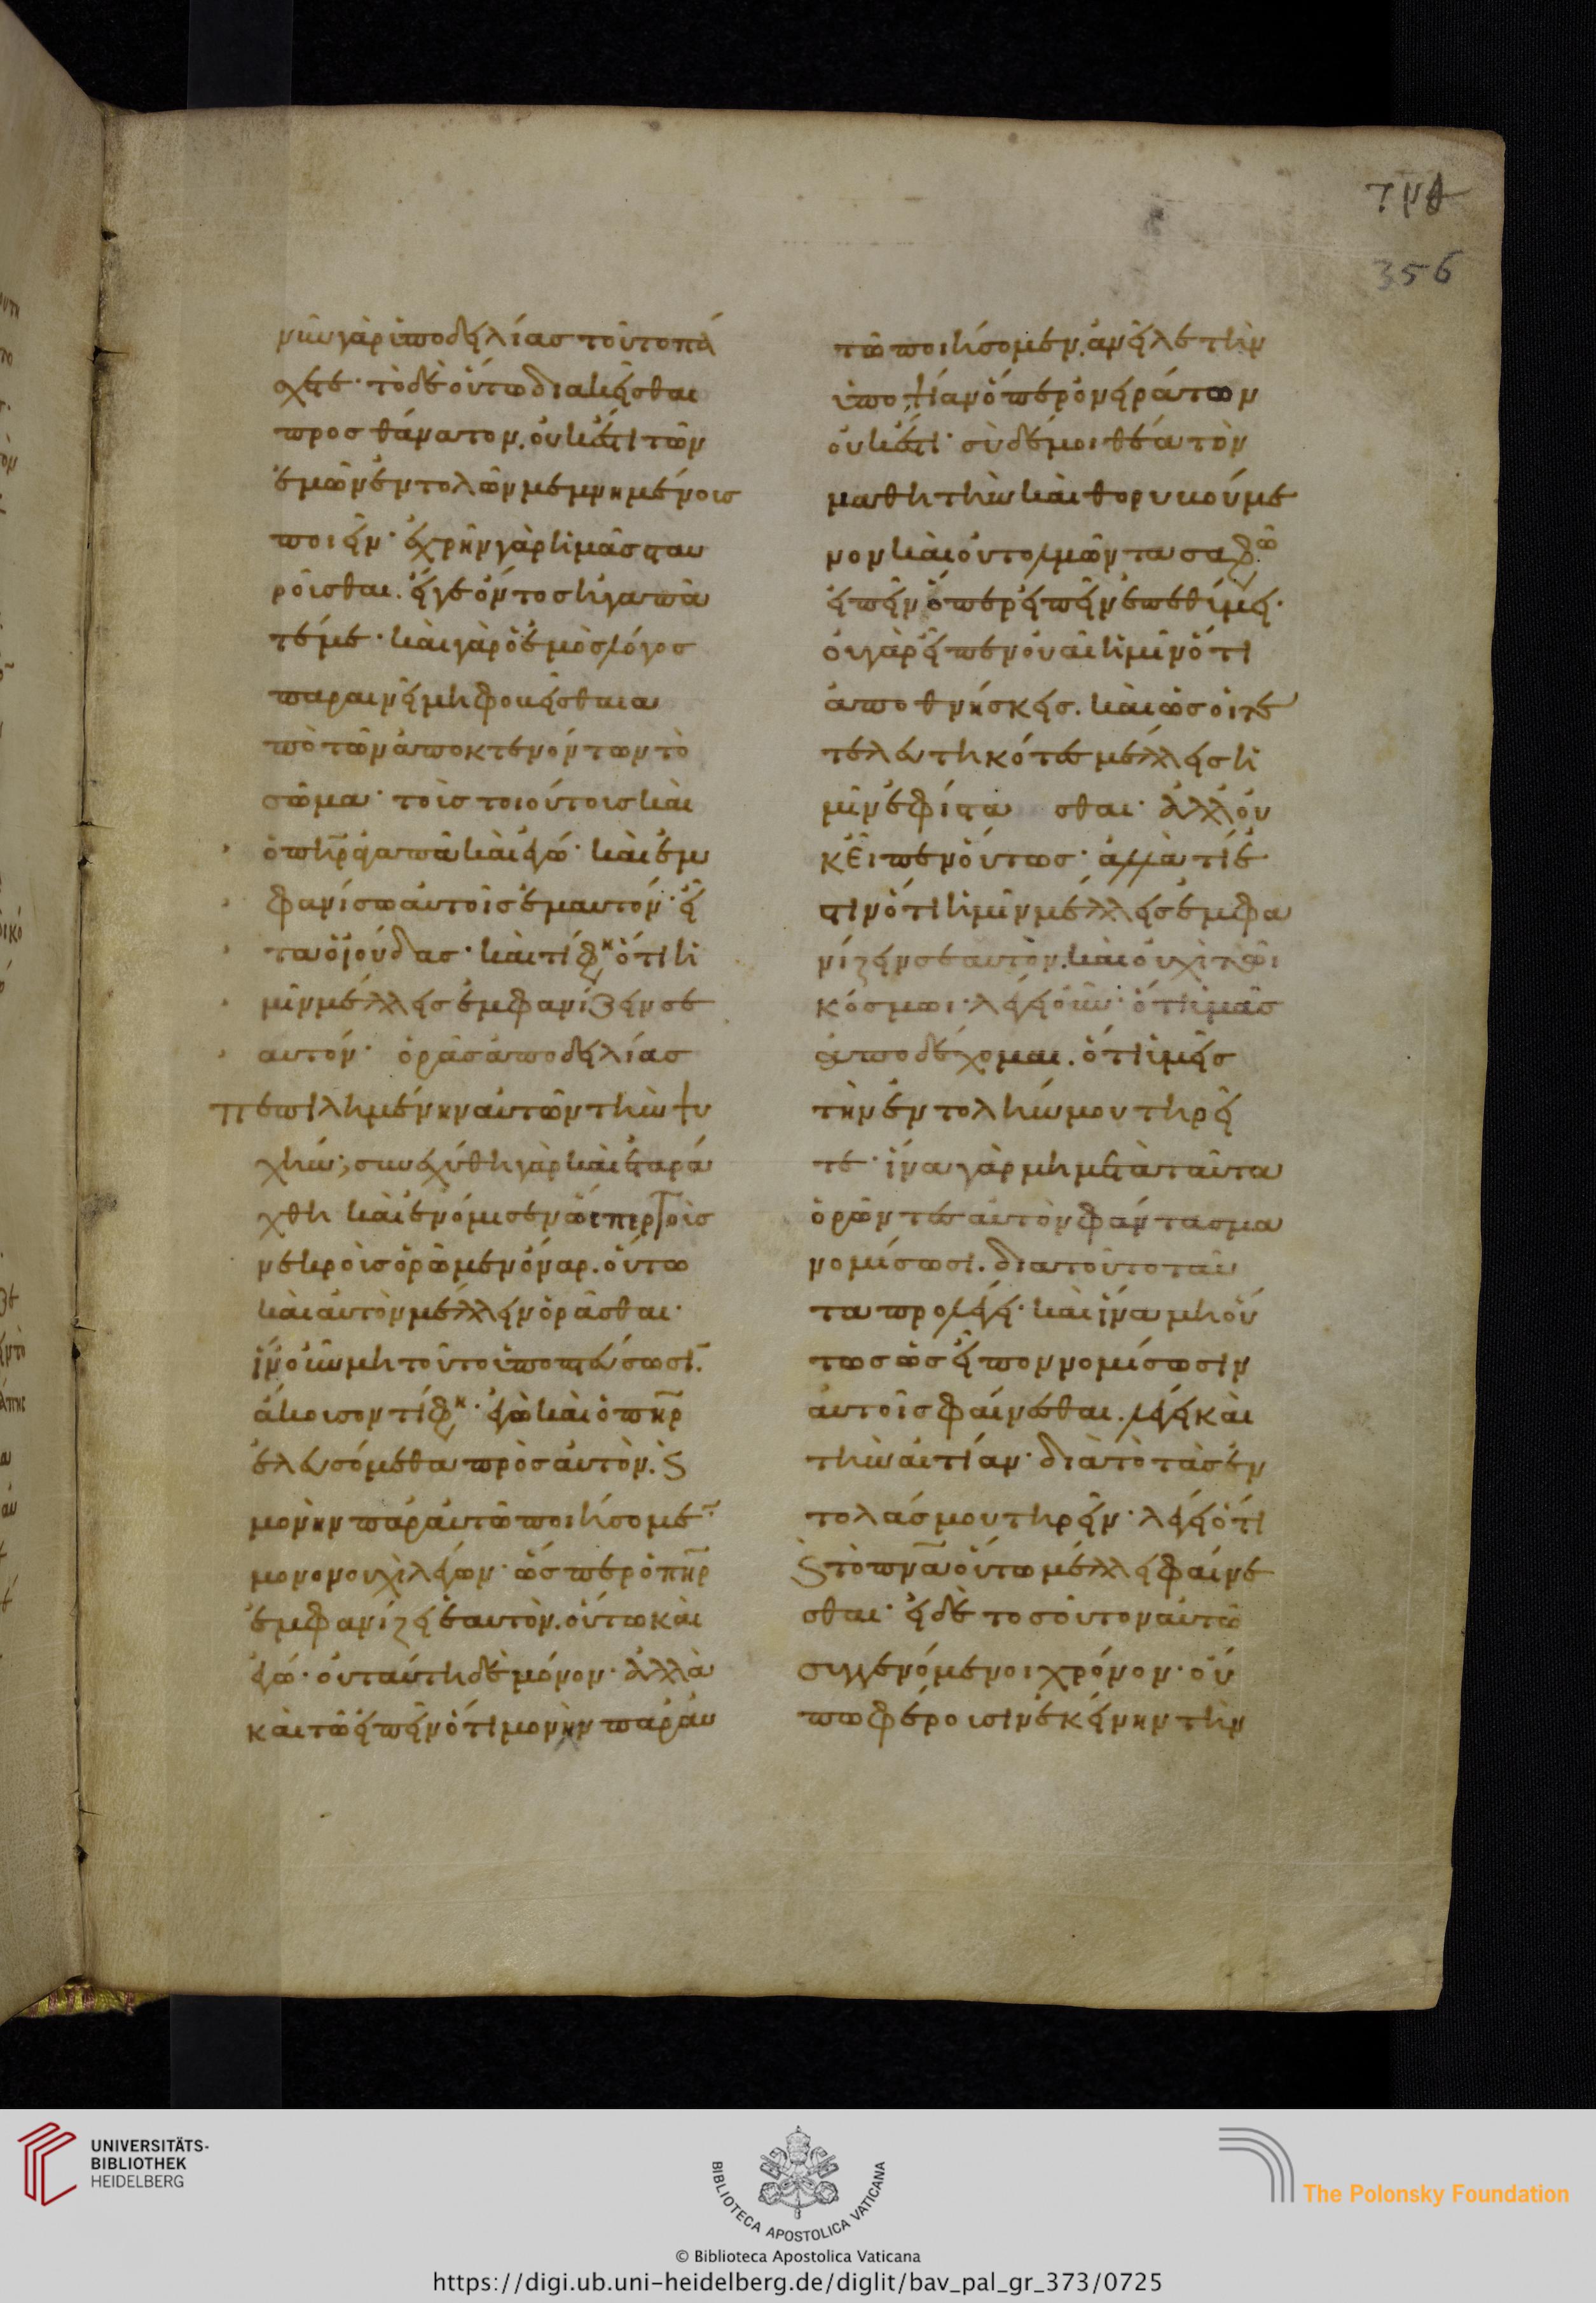 νῦν γὰρ ὑπο δειλίασ τοῦτο πά
σχετε· τὸ δὲ οὕτω διακεῖσθαι
προσ θάνατον. οὐκ ἔστι τῶν
ἐμῶν ἐντολῶν μεμνημένοισ
ποιεῖν· ἐχρῆν γὰρ ἡμᾶσ σταυ
ροῦσθαι. εἴγε ὄντοσ ἠγαπᾶ
τέ με· καὶ γὰρ ὁ ἐμὸσ λόγοσ
παραινεῖ μὴ φοβεῖσθαι α
πὸ τῶν ἀποκτενόντων τὸ
σῶμα· τοὺσ τοιούτουσ καὶ
ὁ πηρ ἀγαπᾶ καὶ ἐγώ· καὶ ἐμ
φανίσω αὐτοῖσ ἐμαυτόν· εἶ
τα ὁ ἰούδασ· καὶ τί φη ὅτι ἡ
μῖν μέλλεισ ἐμφανίζειν σε
αυτόν· ὁρᾶσ ἀπο δειλίασ
πεπιλημένην αὐτῶν τὴν ψυ
χήν; συνεχύθη γὰρ καὶ ἐταρά
χθη καὶ ἐνόμισεν ὥσπερ τοὺσ
νεκροὺσ ὁρῶμεν ὄναρ. οὕτω
καὶ αὐτὸν μέλλειν ὁρᾶσθαι·
ἵν' οὖν μὴ τοῦτο ὑποπτεύσωσι.
ἄκουσον τί φη· ἐγὼ καὶ ὁ πηρ
ἐλευσόμεθα πρὸσ αὐτὸν. ϗ
μονὴν παρ' αὐτῶ ποιήσομε·
μονονουχὶ λέγων· ὥσπερ ὁ πηρ
ἐμφανίζει ἑαυτὸν. οὕτω καὶ
ἐγώ· οὐ ταύτη δὲ μόνον· ἀλλὰ
καὶ τῶ εἰπεῖν ὅτι μονὴν παρ' αὐ
τῶ ποιήσομεν. ἀνεῖλε τὴν
ὑποψίαν ὅπερ ὀνειράτων
οὐκ ἔστι· σὺ δέ μοι θέα τὸν
μαθητὴν καὶ θορυβούμε
νον καὶ οὐ τολμῶντα σαφῶ
εἰπεῖν ὅπερ εἰπεῖν ἐπεθύμει·
οὐ γὰρ εἶπεν οὐαὶ ἡμῖν ὅτι
ἀποθνήσκεισ. καὶ ὡσ οἱ τε
τελευτηκότεσ μέλλεισ ἡ
μῖν ἐφίστασθαι· ἀλλ' οὐ
κ εἶπεν οὕτωσ· ἀλλὰ τί ἐ
στιν ὅτι ἡμῖν μέλλεισ ἐμφα
νίζειν σεαυτὸν. καὶ οὐχὶ τῶι
κόσμωι· λέγει οὖν· ὅτι ὑμᾶσ
ἀποδέχομαι. ὅτι ὑμεῖσ
τὴν ἐντολήν μου τηρεῖ
τε· ἵνα γὰρ μὴ μετὰ ταῦτα
ὁρῶντεσ αὐτὸν φάντασμα
νομίσωσι. διατοῦτο ταῦ
τα προλέγει· καὶ ἵνα μὴ οὕ
τωσ ὡσ εἶπον νομίσωσιν
αὐτοῖσ φαίνεσθαι. λέγει καὶ
τὴν αἰτίαν· διὰ τὸ τὰσ ἐν
τολάσ μου τηρεῖν· λέγει ὅτι
ϗ τὸ πνα οὕτω μέλλει φαίνε
σθαι· εἰ δὲ τοσοῦτον αὐτῶ
συγγενόμενοι χρόνον· οὔ
πω φέρουσιν ἐκείνην τὴν
356
UNIVERSITÄTS-
BIBLIOTHEK
HEIDELBERG
BIBLIOTECA APOSTOLICA VATICANA
The Polonsky Foundation
© Biblioteca Apostolica Vaticana
https://digi.ub.uni-heidelberg.de/diglit/bav_pal_gr_373/0725